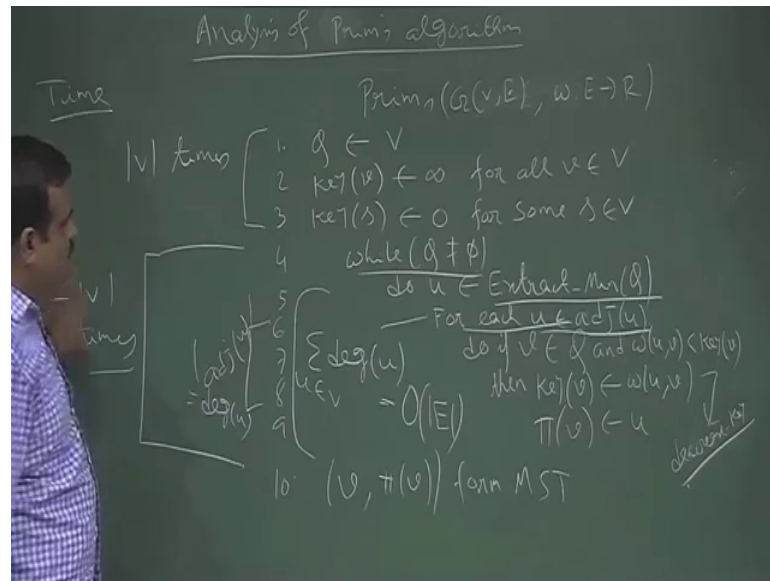 Analysis of Prim's algorithm
Time
Prims(G(V,E), w: E→R)
|V| times
1. Q ← V
2 key(v) ← ∞ for all v ∈ V
3 key(s) ← 0 for some s ∈ V
4 while (Q ≠ φ)
5 do u ∈ Extract-Min(Q)
6 For each u ∈ adj(u)
7 do if v ∈ Q and w(u,v) < key(v)
8 then key(v) ← w(u,v)
9 π(v) ← u
decrease-key
|V|
times
|adj(u)|
= deg(u)
Σ deg(u)
u∈V
= O(|E|)
10. (v, π(v)) form MST